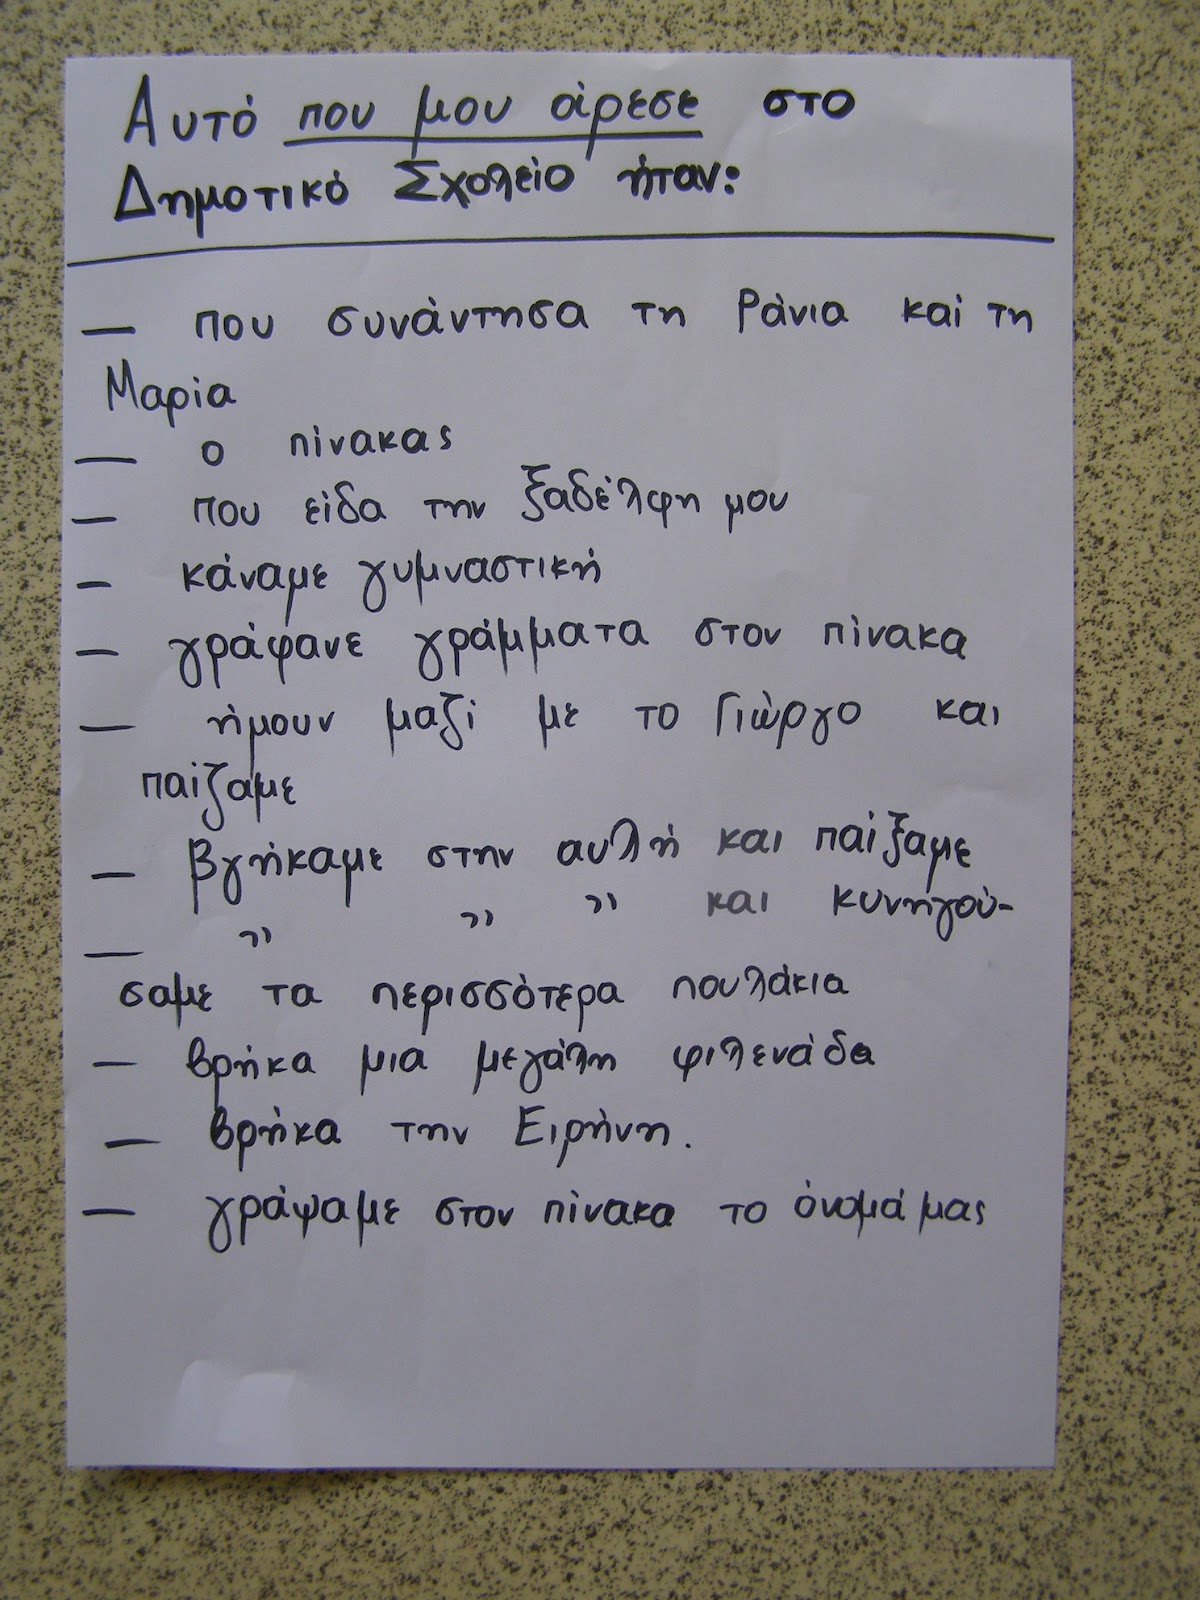 Αυτό που μου άρεσε στο
Δημοτικό Σχολείο ήταν:
— που συνάντησα τη Ράνια καί τη
Μαρία
— ο πίνακας
— που είδα την ξαδέλφη μου
— κάναμε γυμναστική
— γράφανε γράμματα στον πίνακα
— ήμουν μαζί με το Γιώργο και
παίζαμε
— βγήκαμε στην αυλή και παίξαμε
— " " " και κυνηγού-
σαμε τα περισσότερα πουλάκια
— βρήκα μια μεγάλη φιλενάδα
— βρήκα την Ειρήνη.
— γράψαμε στον πίνακα το όνομά μας